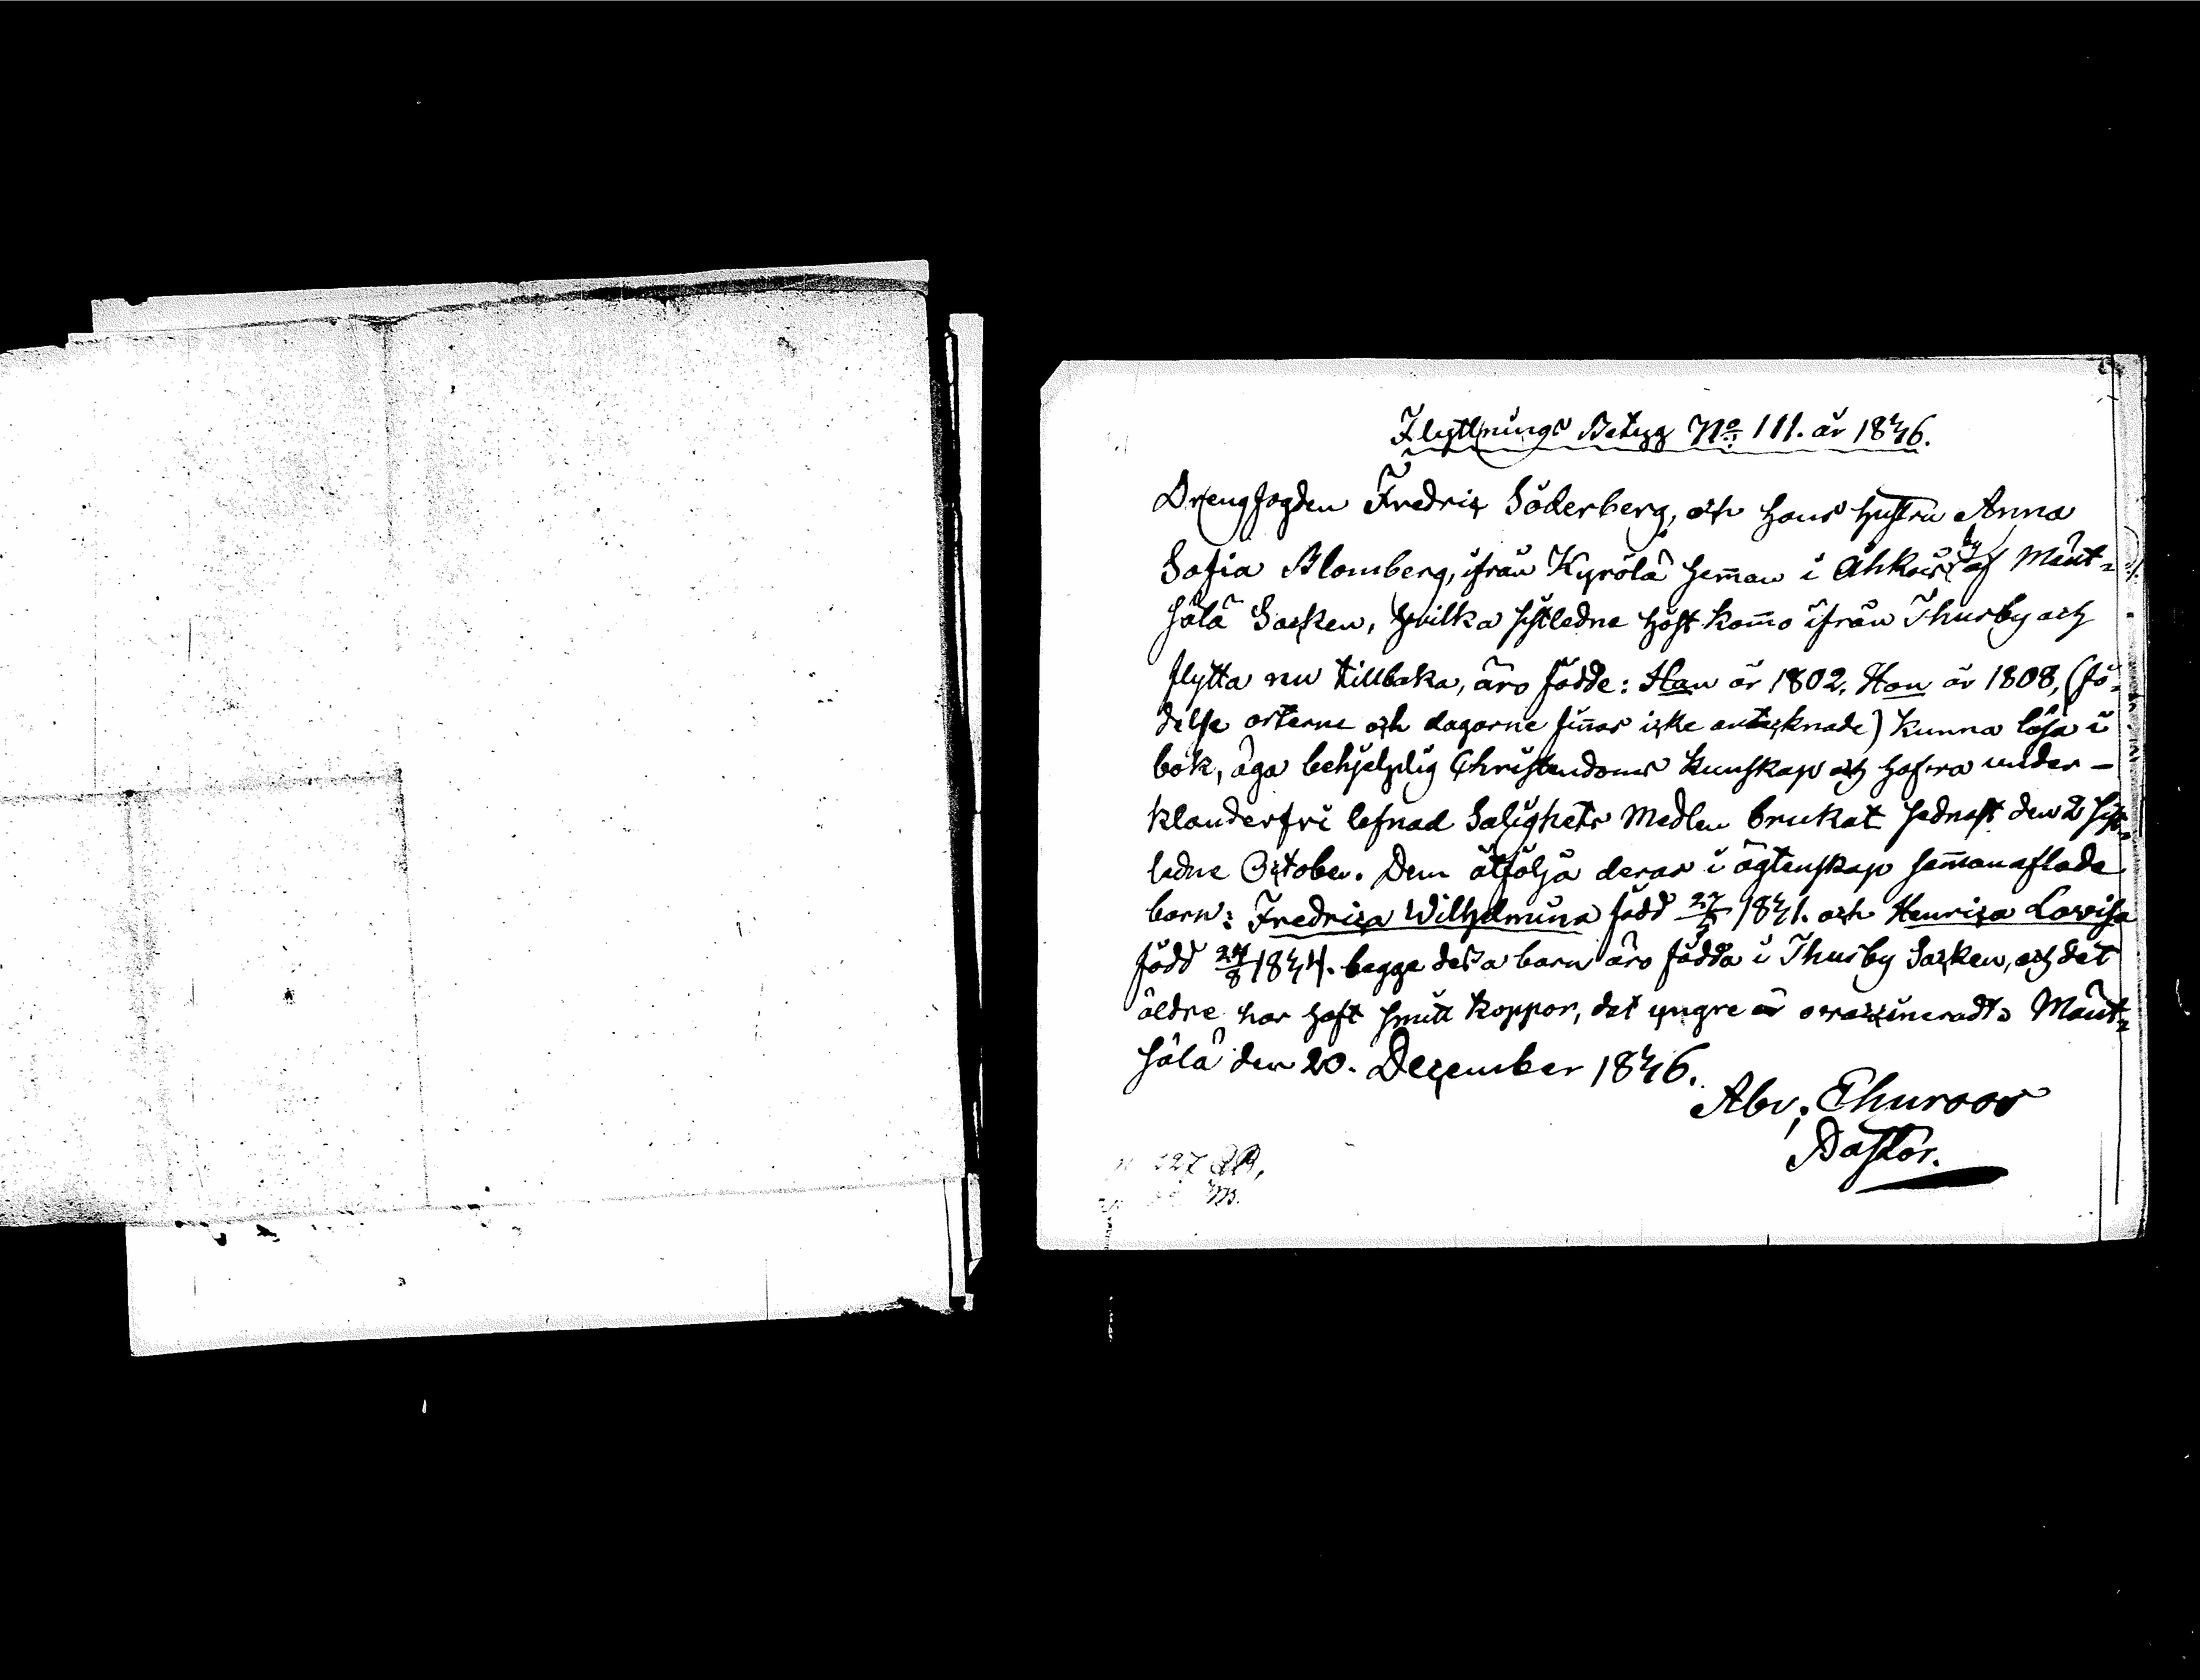 Flyttnings Betyg No 111. år 1846.
Drengfogden Fredric Söderberg, och hans hustru Anna
Sofia Blomberg, ifrån Kyrölä heman i Ahkois by af Mänt-
sälä Socken, hvilka sistledne höst komo ifrån Thusby och
flytta nu tillbaka, äro födde: Han år 1802. Hon år 1808, (fö-
delse orterne och dagarne finas icke antecknade) kunna läsa i
bok, äga behjelplig Christendoms kunskap och hafva under
klanderfri lefnad Salighets Medlen brukat sednast den 2 sist-
ledne October. Dem åtfölja deras i ägtenskap samanaflade
barn: Fredrica Wilhelmina född 27/5 1841. och Henrica Lovisa
född 24/8 1844. begge dessa barn äro födda i Thusby Socken, och det
äldre har haft smitt koppor, det yngre är ovaccineradt. Mänt-
sälä den 20. December 1846.
Abr: Thuroor
Pastor.